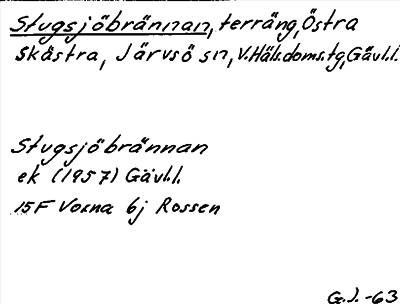 Stugsjöbrännan, terräng, Östra
Skästra, Järvsö sn, V.Häls.doms.tg, Gävl.l.
Stugsjöbrännan
ek (1957) Gävl.l.
15F Voxna 6j Rossen
G.J. -63